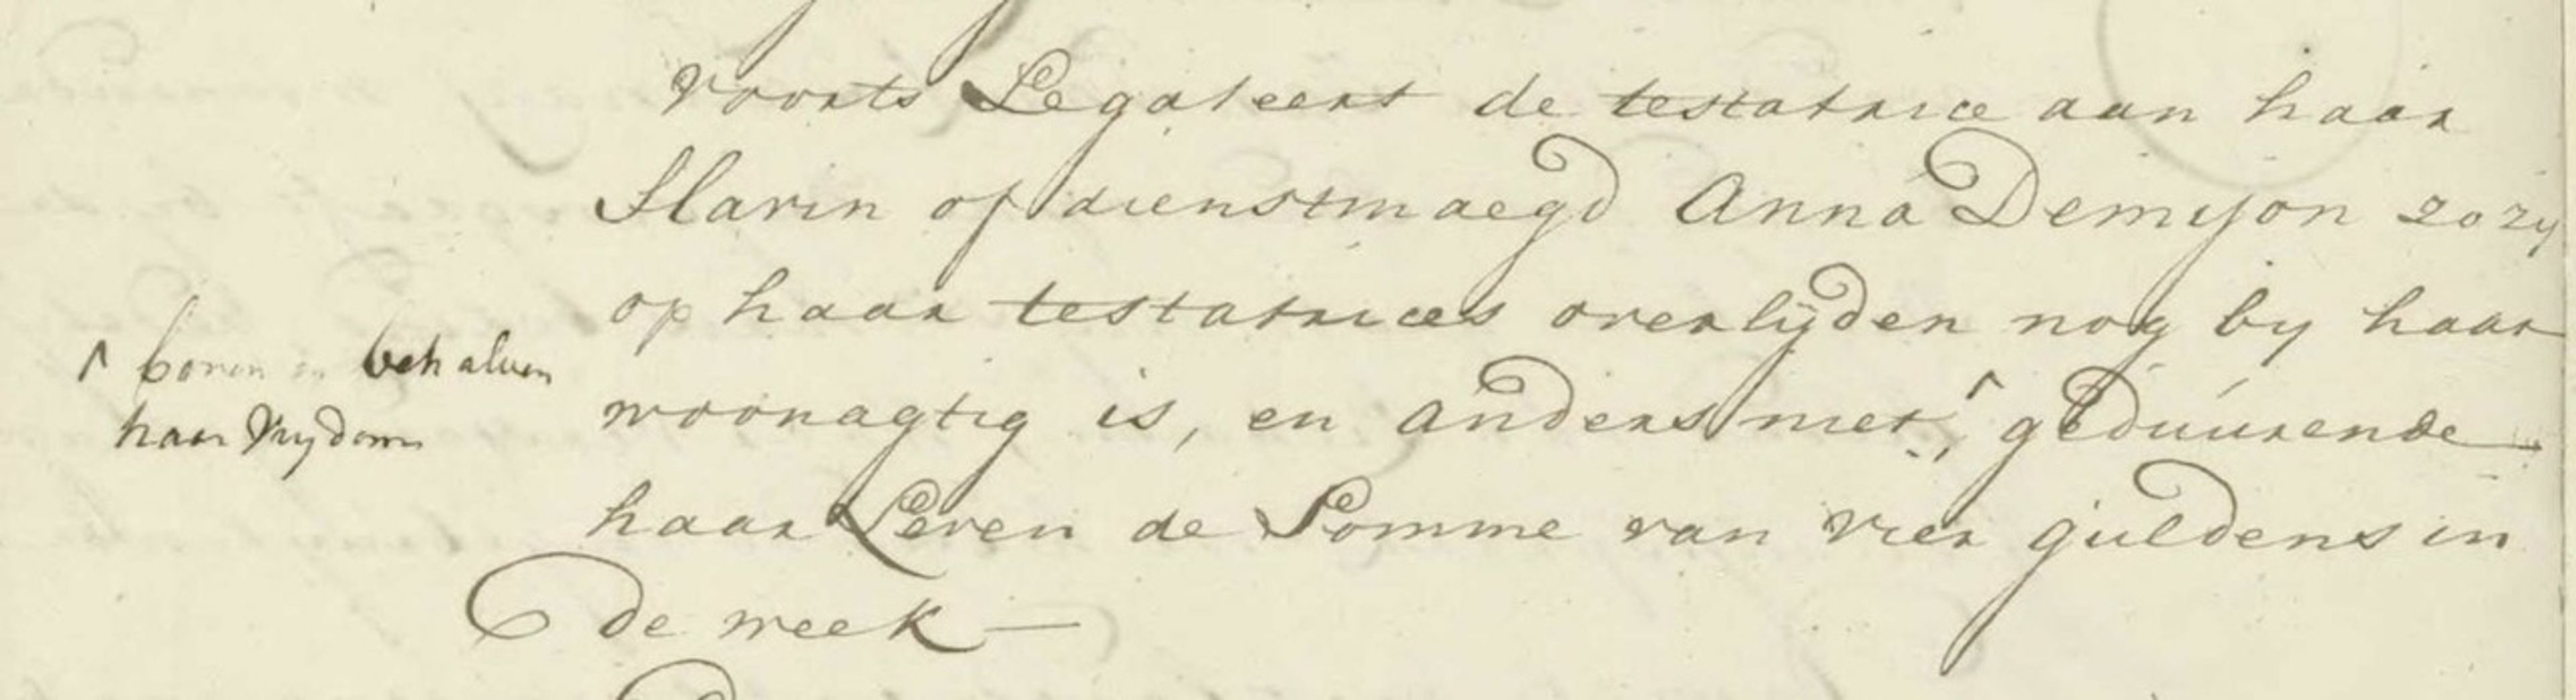 Voorts Legateert de testatrice aan haar
Slavin of dienstmaegd Anna Demyon zo zy
op haar testatrices overlijden nog by haar
⌃ boven en behalven
haar Vrydom
woonagtig is, en anders niet, ⌃ geduurende
haar Leven de Somme van vier guldens in
de week —